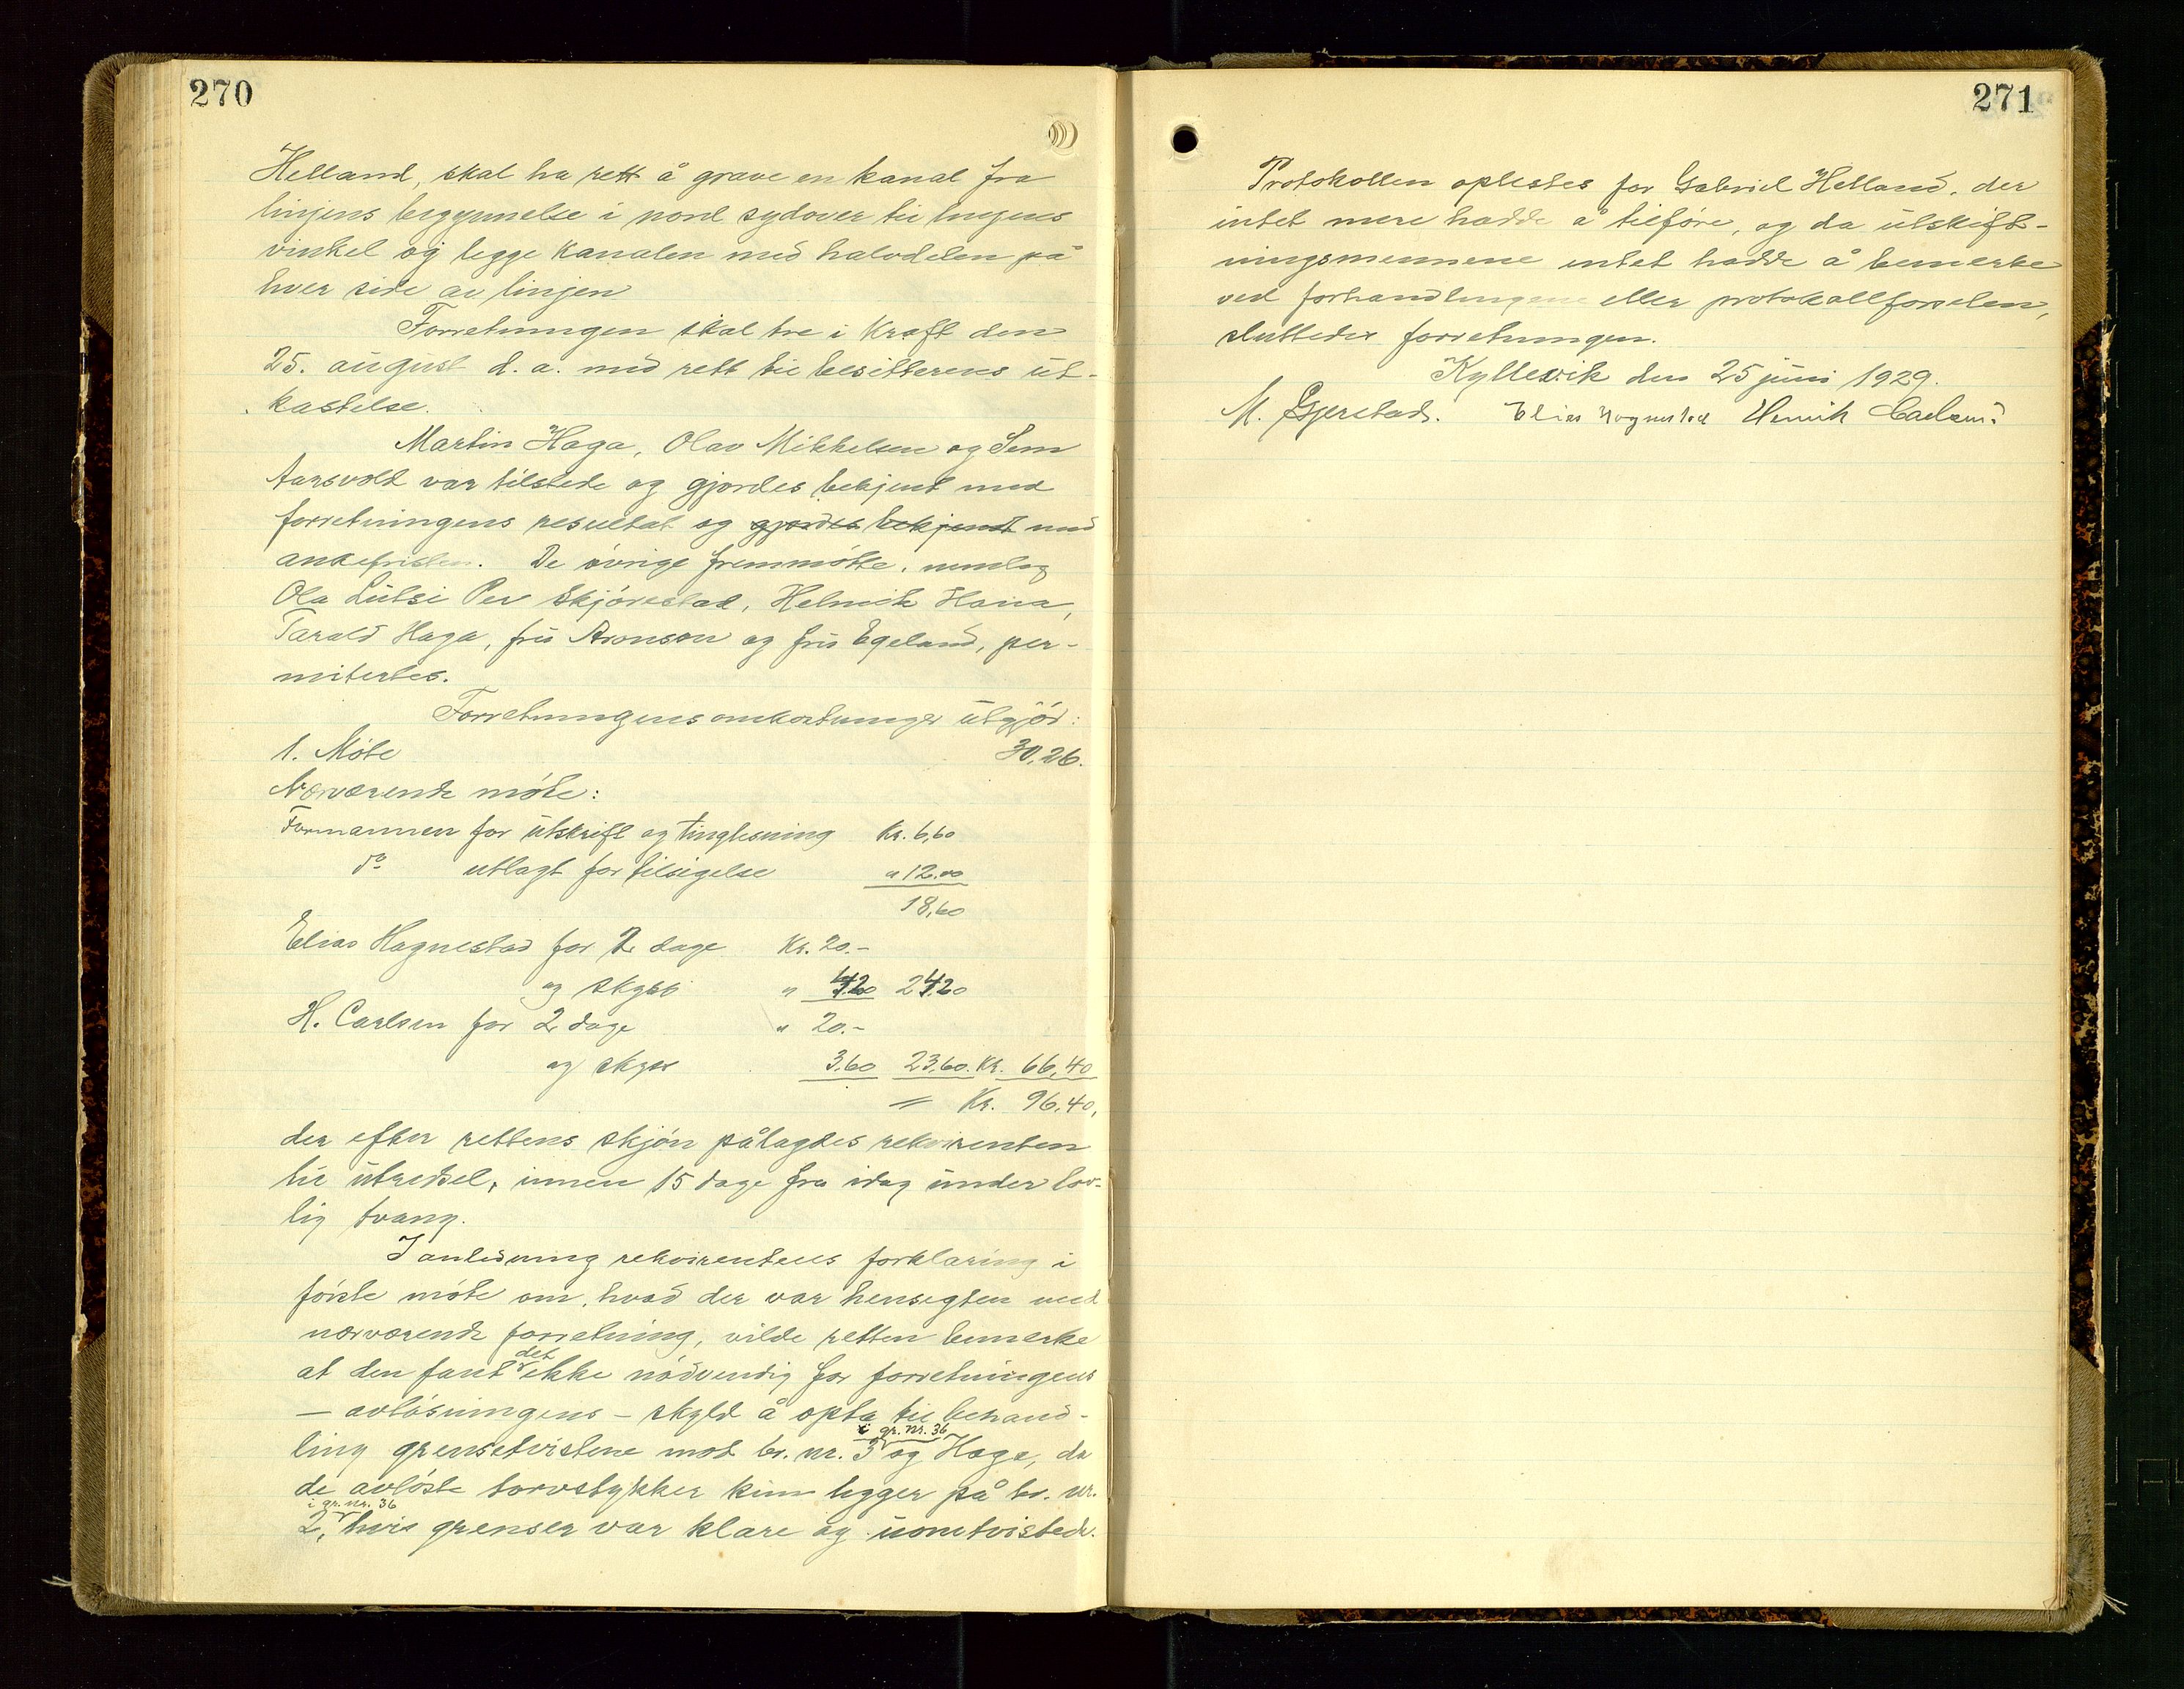 270
Helland, skal ha rett å grave en kanal fra
linjens begynnelse i nord sydover til linjens
vinkel og legge kanalen med halvdelen på
hver side av linjen
Forretningen skal tre i kraft den
25. august d. a. med rett til besitterens ut-
kastelse.
Martin Haga, Olav Mikkelsen og Sem
Aarsvold var tilstede og gjordes bekjent med
forretningens resultat og gjordes bekjendt med
ankefristen. De øvrige fremmøtte, nemlig
Ola Lutsi Per Skjørestad, Helmik Hana,
Tarald Haga, fru Aronson og fru Egeland, per-
mitertes.
Forretningens omkostninger utgjør:
1. Møte 30,26.
Nærværende møte:
Formannen for utskrift og tinglesning Kr. 6,60
do utlagt for tilsigelse " 12.00
18,60
Elias Hognestad for 2 dage Kr. 20.-
og skyss " 4.20 24,20
H. Carlsen for 2 dage " 20.-
og skyss 3.60 23,60. Kr. 66,40
= Kr. 96.40,
der efter rettens skjøn pålagdes rekvirenten
til utredsel, innen 15 dage fra idag under lov-
lig tvang.
I anledning rekvirentens forklaring i
første møte om, hvad der var hensigten med
nærværende forretning, vilde retten bemerke
at den fant det ikke nødvendig for forretningens
- avløsningens - skyld å opta til behand-
ling grensetvistene mot br. nr. 3 i gr. nr. 36 og Haga, da
de avløste torvstykker kun ligger på br. nr.
2, i gr. nr. 36 hvis grenser var klare og uomtvistede.
271
Protokollen oplestes for Gabriel Helland, der
intet mere hadde å tilføre, og da utskift-
ningsmennene intet hadde å bemerke
ved forhandlingene eller protokollførselen,
sluttedes forretningen.
Kyllesvik den 25 juni 1929.
M. Gjerstad. Elias Hognestad Henrik Carlsen